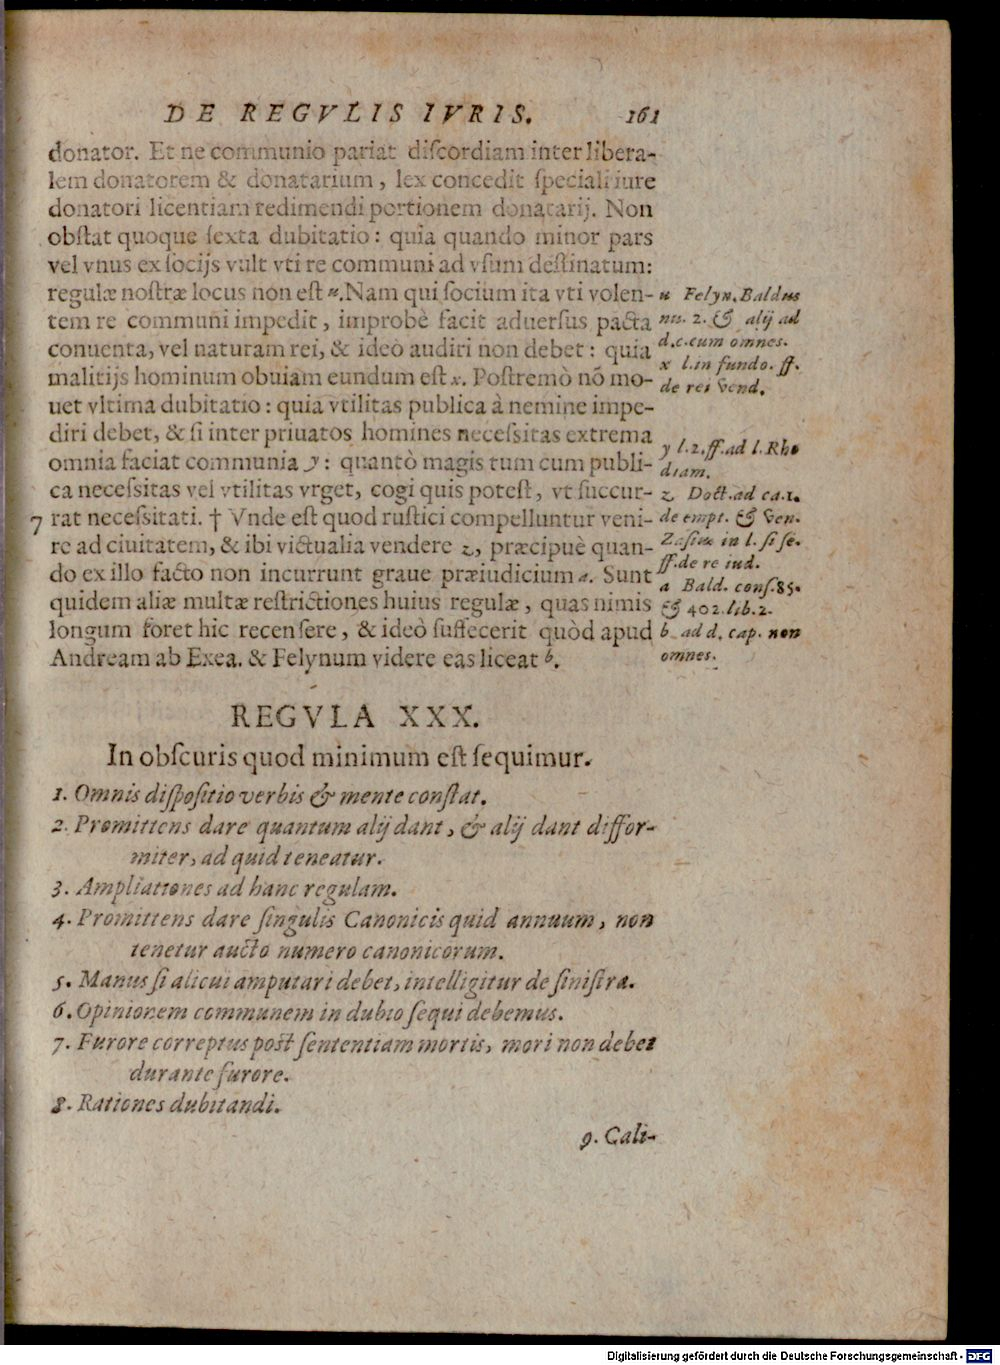 DE REGVLIS IVRIS. 161
donator. Et ne communio pariat diſcordiam inter libera-
lem donatorem & donatarium, lex concedit ſpeciali iure
donatori licentiam redimendi portionem donatarij. Non
obſtat quoque ſexta dubitatio: quia quando minor pars
vel vnus ex ſocijs vult vti re communi ad vſum deſtinatum:
regulæ noſtræ locus non eſt u. Nam qui ſocium ita vti volen-
tem re communi impedit, improbè facit aduerſus pacta
conuenta, vel naturam rei, & ideò audiri non debet: quia
malitijs hominum obuiam eundum eſt x. Poſtremò nō mo-
uet vltima dubitatio: quia vtilitas publica à nemine impe-
diri debet, & ſi inter priuatos homines neceſsitas extrema
omnia faciat communia y: quantò magis tum cum publi-
ca neceſsitas vel vtilitas vrget, cogi quis poteſt, vt ſuccur-
7 rat neceſsitati. † Vnde eſt quod ruſtici compelluntur veni-
re ad ciuitatem, & ibi victualia vendere z, præcipuè quan-
do ex illo facto non incurrunt graue præiudicium a. Sunt
quidem aliæ multæ reſtrictiones huius regulæ, quas nimis
longum foret hic recenſere, & ideò ſuffecerit quòd apud
Andream ab Exea. & Felynum videre eas liceat b.
u Felyn. Baldus
nu. 2. & alij ad
d. c. cum omnes.
x l. in fundo. ff.
de rei vend.
y l. 2. ff. ad l. Rho
diam.
z Doct. ad ca. 1.
de empt. & ven.
Zaſius in l. ſi ſe.
ff. de re iud.
a Bald. conſ. 85.
& 402. lib. 2.
b ad d. cap. non
omnes.
REGVLA XXX.
In obſcuris quod minimum eſt ſequimur.
1. Omnis diſpoſitio verbis & mente conſtat.
2. Promittens dare quantum alij dant, & alij dant diffor-
miter, ad quid teneatur.
3. Ampliationes ad hanc regulam.
4. Promittens dare ſingulis Canonicis quid annuum, non
tenetur aucto numero canonicorum.
5. Manus ſi alicui amputari debet, intelligitur de ſiniſtra.
6. Opinionem communem in dubio ſequi debemus.
7. Furore correptus poſt ſententiam mortis, mori non debet
durante furore.
8. Rationes dubitandi.
9. Cali-
Digitalisierung gefördert durch die Deutsche Forschungsgemeinschaft - DFG